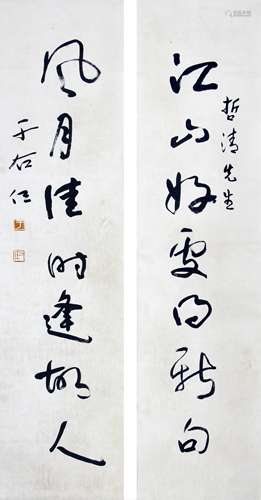 江山好處得新句
哲清先生
風月佳時逢故人
于右任